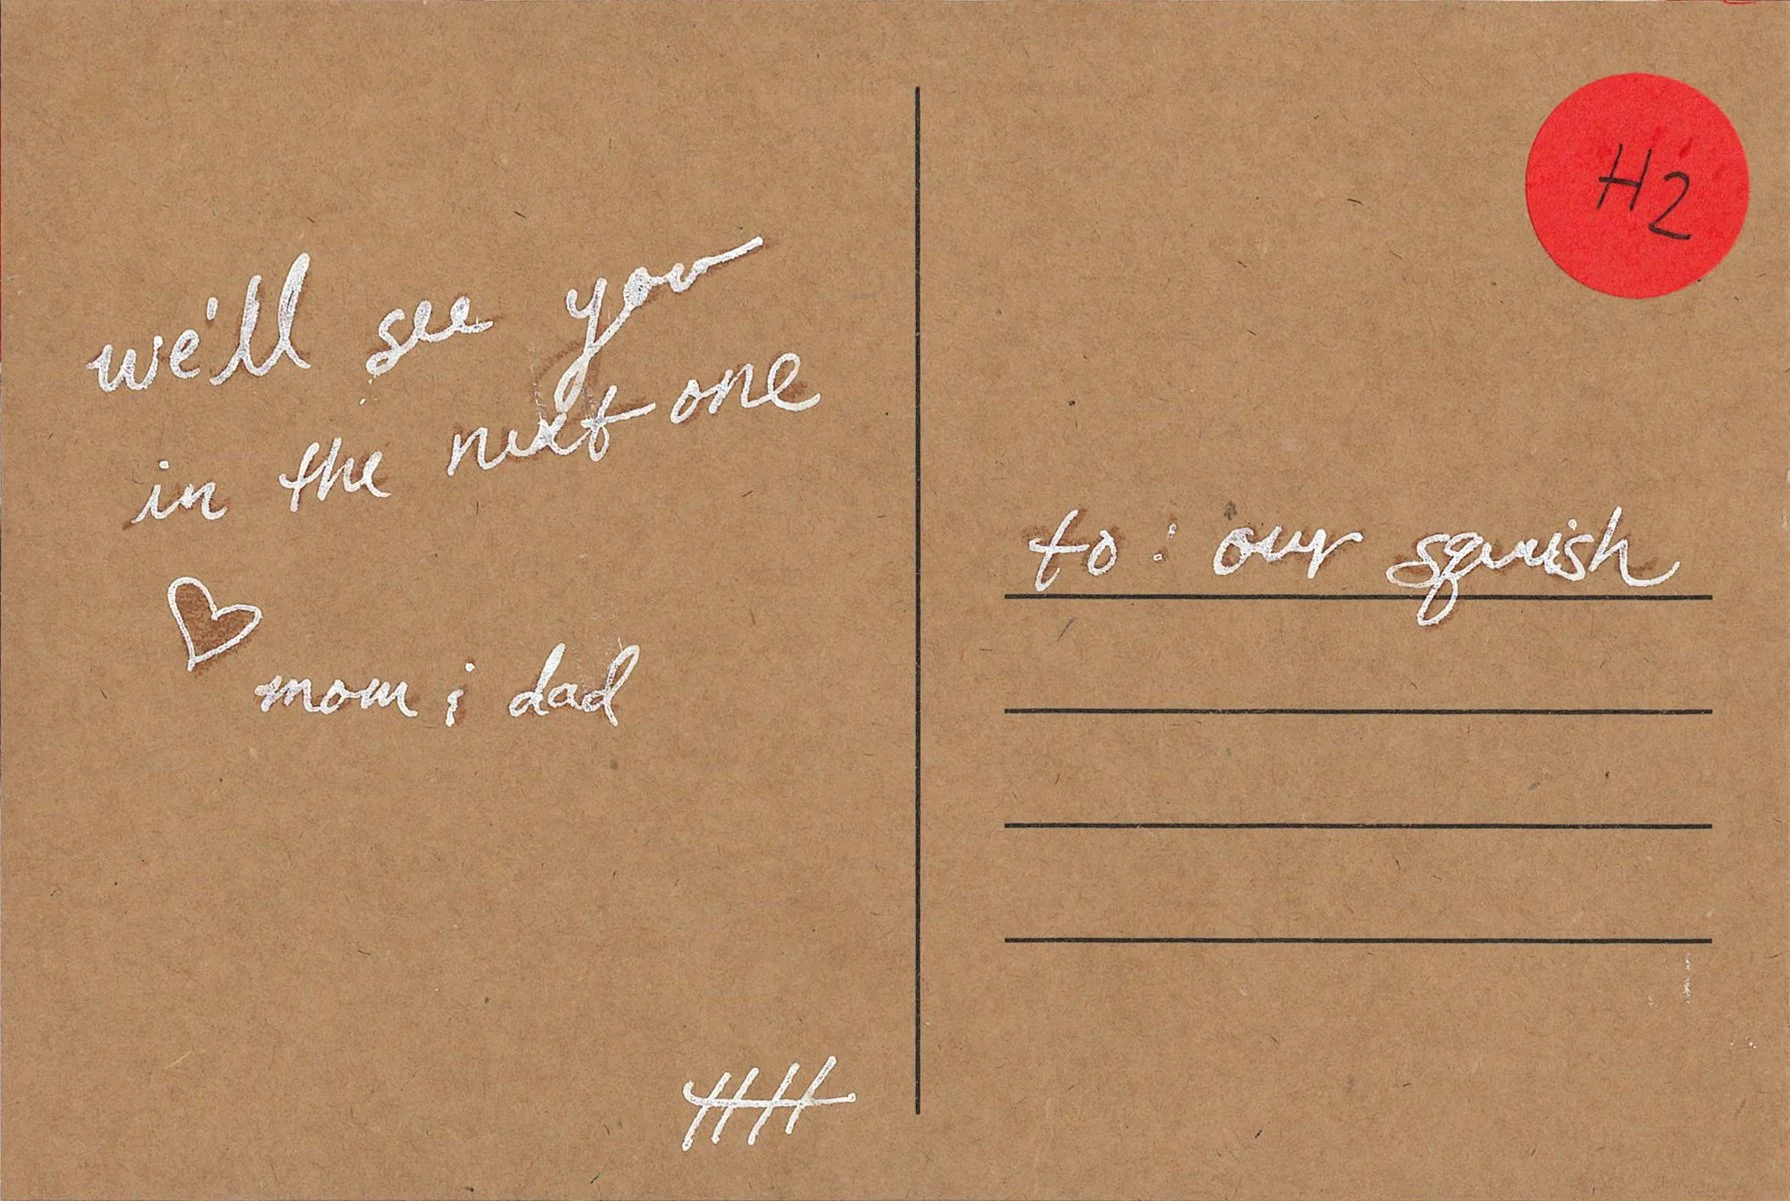 we'll see you
in the next one
mom & dad
H2
to: our squish